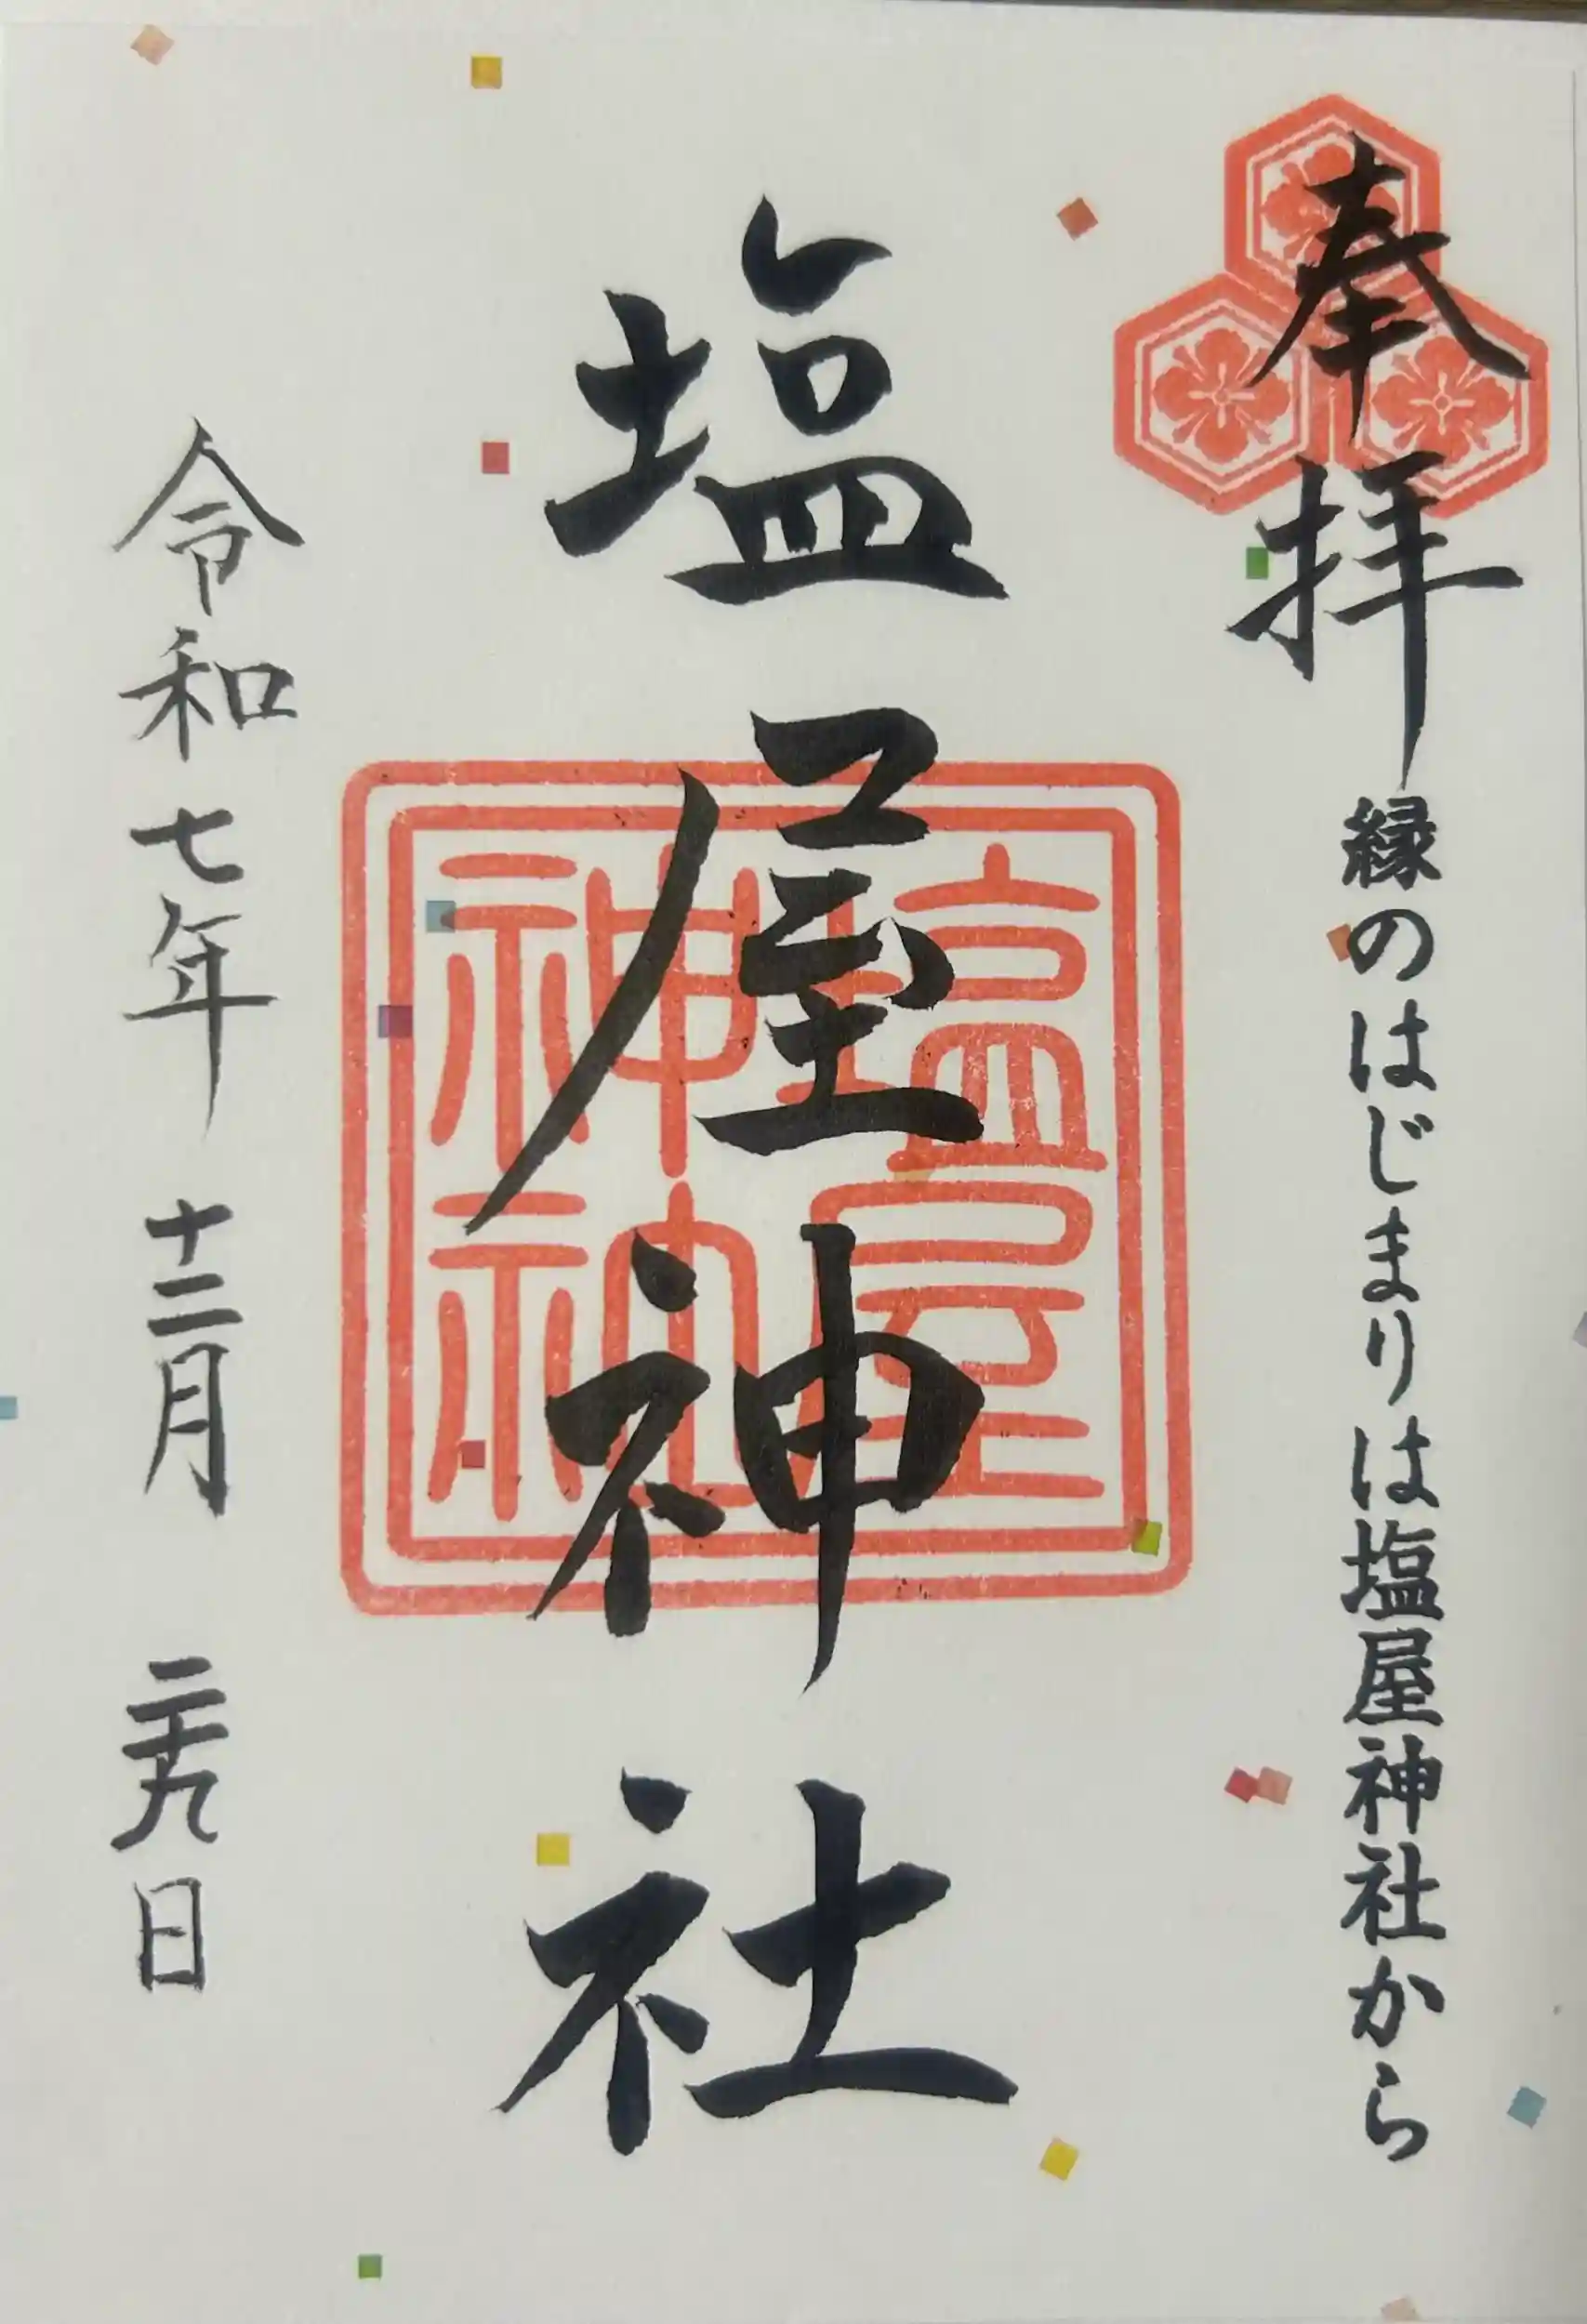 奉拝
縁のはじまりは塩屋神社から
塩屋神社
塩屋
神社
令和七年 十二月 二十九日